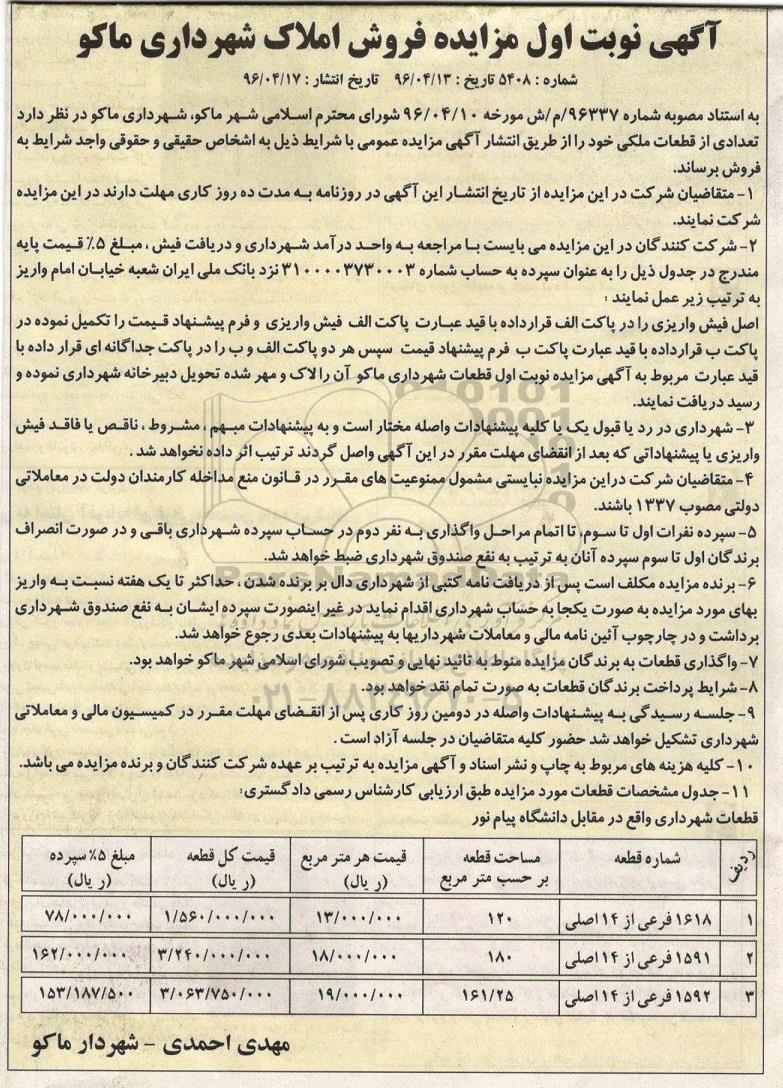 آگهی نوبت اول مزایده فروش املاک شهرداری ماکو
شماره : ۵۴۰۸ تاریخ : ۹۶/۰۴/۱۳ تاریخ انتشار : ۹۶/۰۴/۱۷
به استناد مصوبه شماره ۹۶۳۳۷/م/ش مورخه ۹۶/۰۴/۱۰ شورای محترم اسلامی شهر ماکو، شهرداری ماکو در نظر دارد
تعدادی از قطعات ملکی خود را از طریق انتشار آگهی مزایده عمومی با شرایط ذیل به اشخاص حقیقی و حقوقی واجد شرایط به
فروش برساند.
۱- متقاضیان شرکت در این مزایده از تاریخ انتشار این آگهی در روزنامه به مدت ده روز کاری مهلت دارند در این مزایده
شرکت نمایند.
۲- شرکت کنندگان در این مزایده می بایست با مراجعه به واحد درآمد شهرداری و دریافت فیش ، مبلغ ۵٪ قیمت پایه
مندرج در جدول ذیل را به عنوان سپرده به حساب شماره ۳۱۰۰۰۰۳۷۳۰۰۰۳ نزد بانک ملی ایران شعبه خیابان امام واریز
به ترتیب زیر عمل نمایند :
اصل فیش واریزی را در پاکت الف قرارداده با قید عبارت پاکت الف فیش واریزی و فرم پیشنهاد قیمت را تکمیل نموده در
پاکت ب قرارداده با قید عبارت پاکت ب فرم پیشنهاد قیمت سپس هر دو پاکت الف و ب را در پاکت جداگانه ای قرار داده با
قید عبارت مربوط به آگهی مزایده نوبت اول قطعات شهرداری ماکو آن را لاک و مهر شده تحویل دبیرخانه شهرداری نموده و
رسید دریافت نمایند.
۳- شهرداری در رد یا قبول یک یا کلیه پیشنهادات واصله مختار است و به پیشنهادات مبهم ، مشروط ، ناقص یا فاقد فیش
واریزی یا پیشنهاداتی که بعد از انقضای مهلت مقرر در این آگهی واصل گردند ترتیب اثر داده نخواهد شد .
۴- متقاضیان شرکت دراین مزایده نبایستی مشمول ممنوعیت های مقرر در قانون منع مداخله کارمندان دولت در معاملاتی
دولتی مصوب ۱۳۳۷ باشند.
۵- سپرده نفرات اول تا سوم، تا اتمام مراحل واگذاری به نفر دوم در حساب سپرده شهرداری باقی و در صورت انصراف
برندگان اول تا سوم سپرده آنان به ترتیب به نفع صندوق شهرداری ضبط خواهد شد.
۶- برنده مزایده مکلف است پس از دریافت نامه کتبی از شهرداری دال بر برنده شدن ، حداکثر تا یک هفته نسبت به واریز
بهای مورد مزایده به صورت یکجا به حساب شهرداری اقدام نماید در غیر اینصورت سپرده ایشان به نفع صندوق شهرداری
برداشت و در چارچوب آئین نامه مالی و معاملات شهرداریها به پیشنهادات بعدی رجوع خواهد شد.
۷- واگذاری قطعات به برندگان مزایده منوط به تائید نهایی و تصویب شورای اسلامی شهر ماکو خواهد بود.
۸- شرایط پرداخت برندگان قطعات به صورت تمام نقد خواهد بود.
۹- جلسه رسیدگی به پیشنهادات واصله در دومین روز کاری پس از انقضای مهلت مقرر در کمیسیون مالی و معاملاتی
شهرداری تشکیل خواهد شد حضور کلیه متقاضیان در جلسه آزاد است .
۱۰- کلیه هزینه های مربوط به چاپ و نشر اسناد و آگهی مزایده به ترتیب بر عهده شرکت کنندگان و برنده مزایده می باشد.
۱۱- جدول مشخصات قطعات مورد مزایده طبق ارزیابی کارشناس رسمی دادگستری:
قطعات شهرداری واقع در مقابل دانشگاه پیام نور
ردیف شماره قطعه مساحت قطعه بر حسب متر مربع قیمت هر متر مربع (ریال) قیمت کل قطعه (ریال) مبلغ ۵٪ سپرده (ریال)
۱ ۱۶۱۸ فرعی از ۱۴ اصلی ۱۲۰ ۱۳/۰۰۰/۰۰۰ ۱/۵۶۰/۰۰۰/۰۰۰ ۷۸/۰۰۰/۰۰۰
۲ ۱۵۹۱ فرعی از ۱۴ اصلی ۱۸۰ ۱۸/۰۰۰/۰۰۰ ۳/۲۴۰/۰۰۰/۰۰۰ ۱۶۲/۰۰۰/۰۰۰
۳ ۱۵۹۲ فرعی از ۱۴ اصلی ۱۶۱/۲۵ ۱۹/۰۰۰/۰۰۰ ۳/۰۶۳/۷۵۰/۰۰۰ ۱۵۳/۱۸۷/۵۰۰
مهدی احمدی - شهردار ماکو